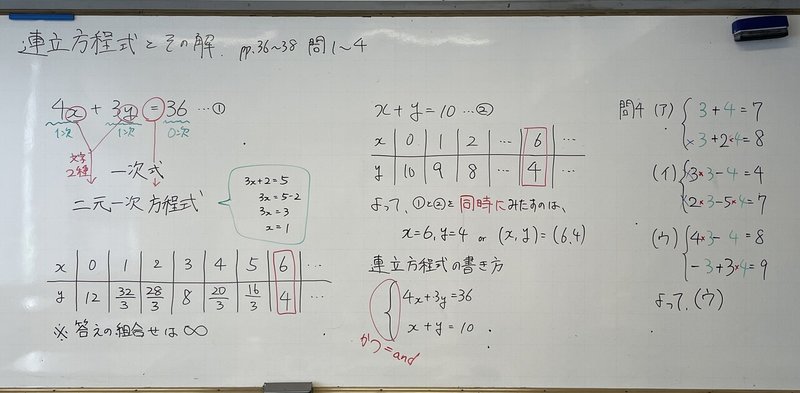 連立方程式とその解. pp.36~38 問1~4
4x + 3y = 36 …①
1次 1次 0次
文字2種
一次式
二元一次方程式
3x+2=5
3x=5-2
3x=3
x=1
x 0 1 2 3 4 5 6 …
y 12 32/3 28/3 8 20/3 16/3 4 …
※ 答えの組合せは∞
x+y=10 …②
x 0 1 2 … 6 …
y 10 9 8 … 4 …
よって、①と②を同時にみたすのは、
x=6, y=4 or (x,y)=(6,4)
連立方程式の書き方
4x+3y=36
x+y=10
かつ=and
問4 (ア) 3+4=7
×3+2×4=8
(イ) ×3×3-4=4
2×3-5×4=7
(ウ) 4×3-4=8
-3+3×4=9
よって、(ウ)